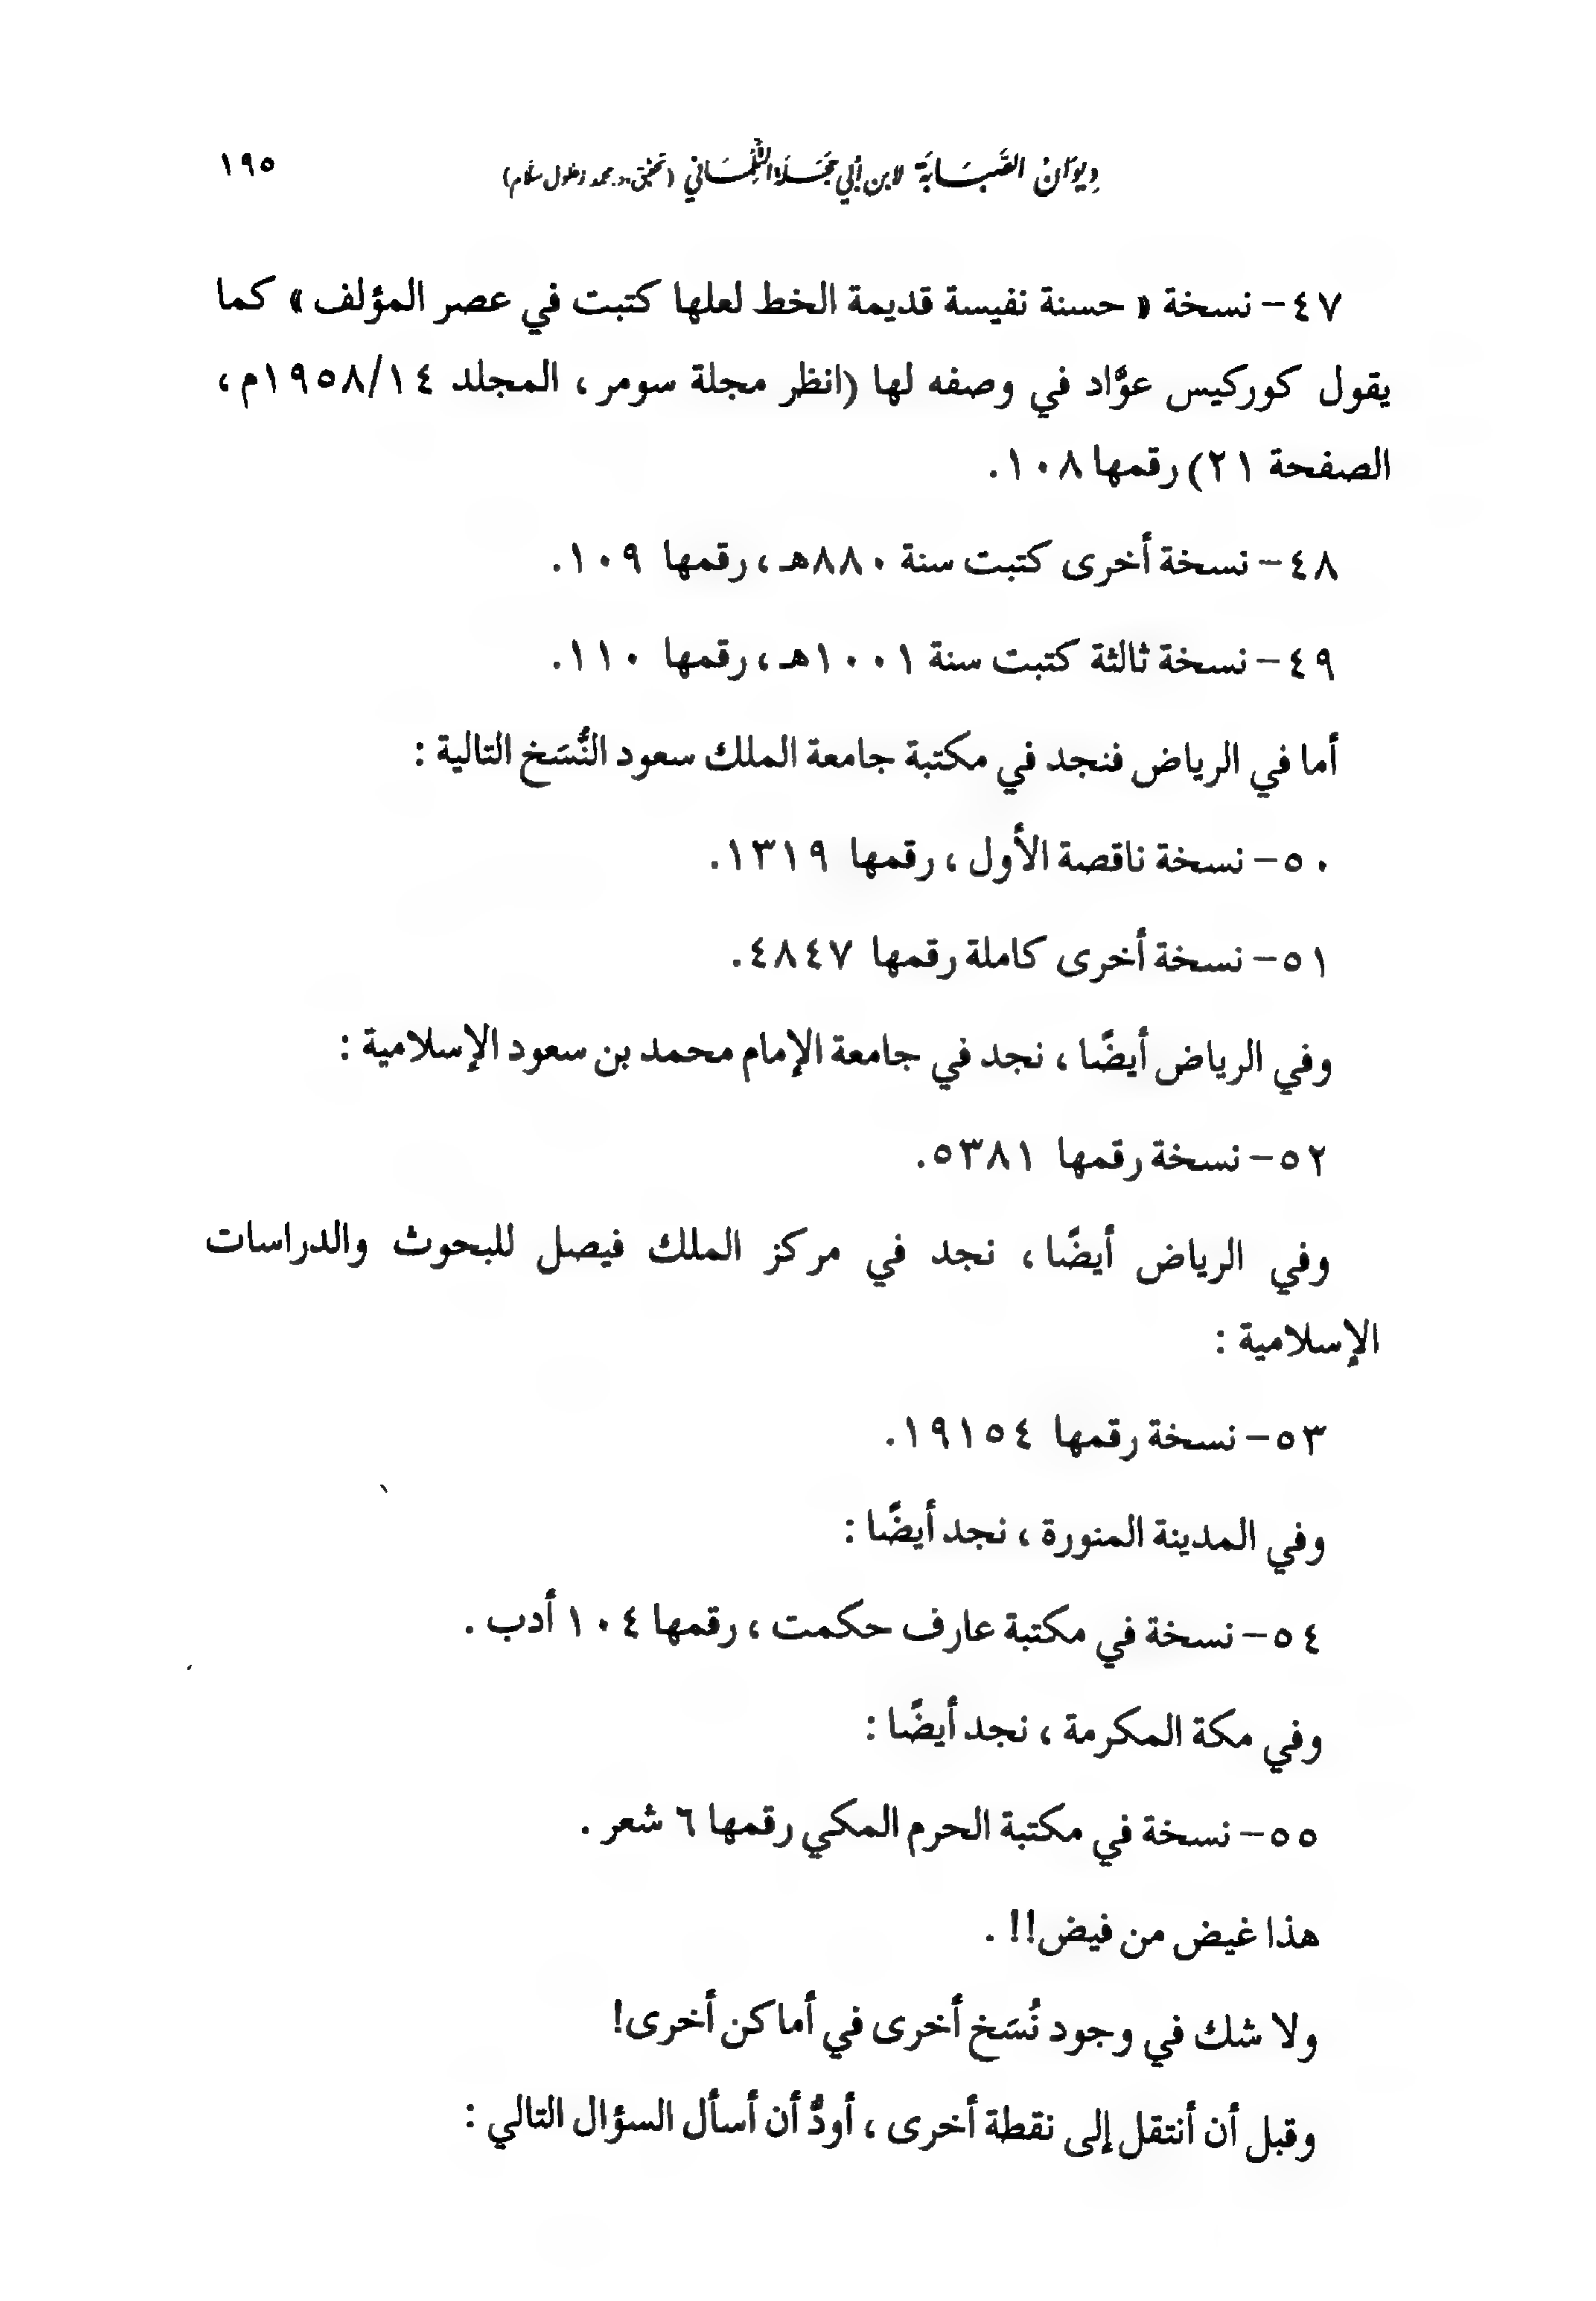 ديوَان الصَّبَابَة لابن أبي حَجَلَة التِّلِمْسَاني (تحقيق د. محمد زغلول سلام) ١٩٥
٤٧- نسخة « حسنة نفيسة قديمة الخط لعلها كتبت في عصر المؤلف » كما
يقول كوركيس عوَّاد في وصفه لها (انظر مجلة سومر ، المجلد ١٩٥٨/١٤م ،
الصفحة ٢١) رقمها ١٠٨.
٤٨- نسخة أخرى كتبت سنة ٨٨٠هـ ، رقمها ١٠٩.
٤٩- نسخة ثالثة كتبت سنة ١٠٠١هـ ، رقمها ١١٠.
أما في الرياض فنجد في مكتبة جامعة الملك سعود النُّسَخ التالية :
٥٠- نسخة ناقصة الأول ، رقمها ١٣١٩.
٥١- نسخة أخرى كاملة رقمها ٤٨٤٧.
وفي الرياض أيضًا ، نجد في جامعة الإمام محمد بن سعود الإسلامية :
٥٢- نسخة رقمها ٥٣٨١.
وفي الرياض أيضًا ، نجد في مركز الملك فيصل للبحوث والدراسات
الإسلامية :
٥٣- نسخة رقمها ١٩١٥٤.
وفي المدينة المنورة ، نجد أيضًا :
٥٤- نسخة في مكتبة عارف حكمت ، رقمها ١٠٤ أدب .
وفي مكة المكرمة ، نجد أيضًا :
٥٥- نسخة في مكتبة الحرم المكي رقمها ٦ شعر .
هذا غيض من فيض!! .
ولا شك في وجود نُسَخ أخرى في أماكن أخرى!
وقبل أن أنتقل إلى نقطة أخرى ، أودُّ أن أسأل السؤال التالي :